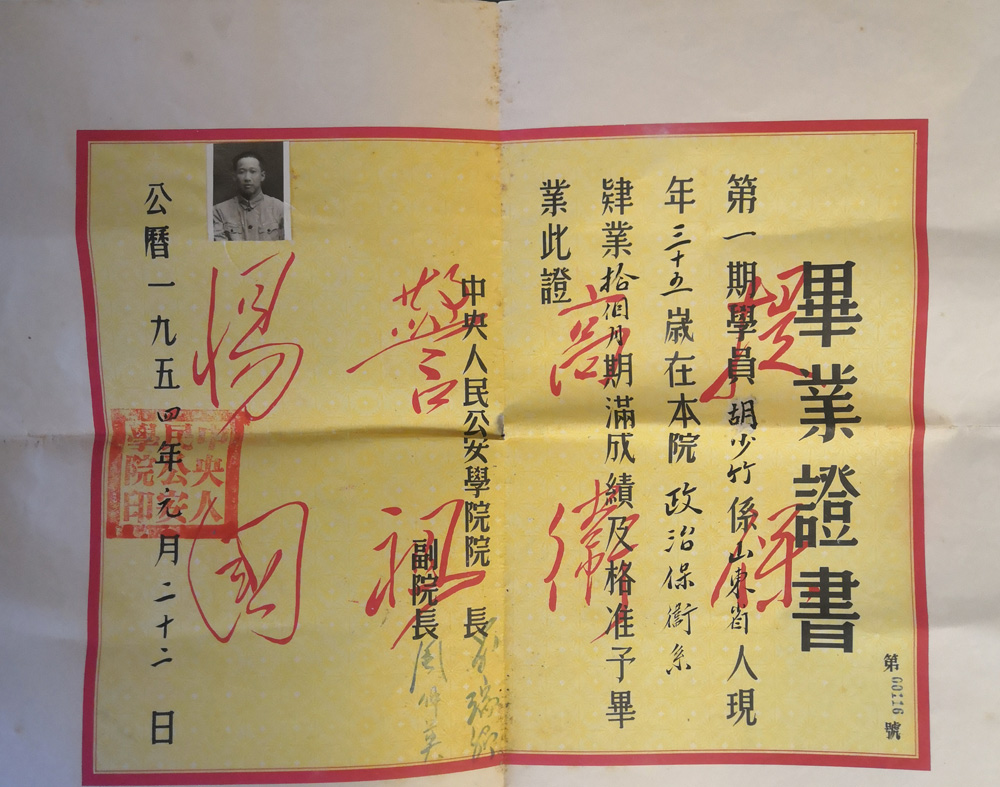 畢業證書
第00116號
第一期學員胡少竹係山東省人現
年三十五歲在本院政治保衛系
肄業拾個月期滿成績及格准予畢
業此證
中央人民公安學院院 長
副院長周仲英
公曆一九五四年元月二十二日
提高警惕
保衛祖國
中央人
民公安
學院印